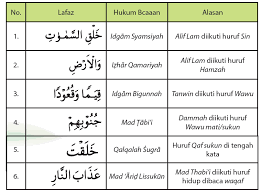 No. Lafaz Hukum Bcaaan Alasan
1. خَلْقِ السَّمٰوٰتِ Idgām Syamsiyah Alif Lam diikuti huruf Sin
2. وَالْاَرْضِ Iẓhār Qamariyah Alif Lam diikuti huruf
Hamzah
3. قِيَامًا وَقُعُوْدًا Idgām Bigunnah Tanwin diikuti huruf Wawu
4. جُنُوْبِهِمْ Mad Ṭābi'i Dammah diikuti huruf
Wawu mati/sukun
5. خَلَقْتَ Qalqalah Ṣugrā Huruf Qaf sukun di tengah
kata
6. عَذَابَ النَّارِ Mad 'Āriḍ Lissukūn Mad Thabi'i diikuti huruf
hidup dibaca waqaf